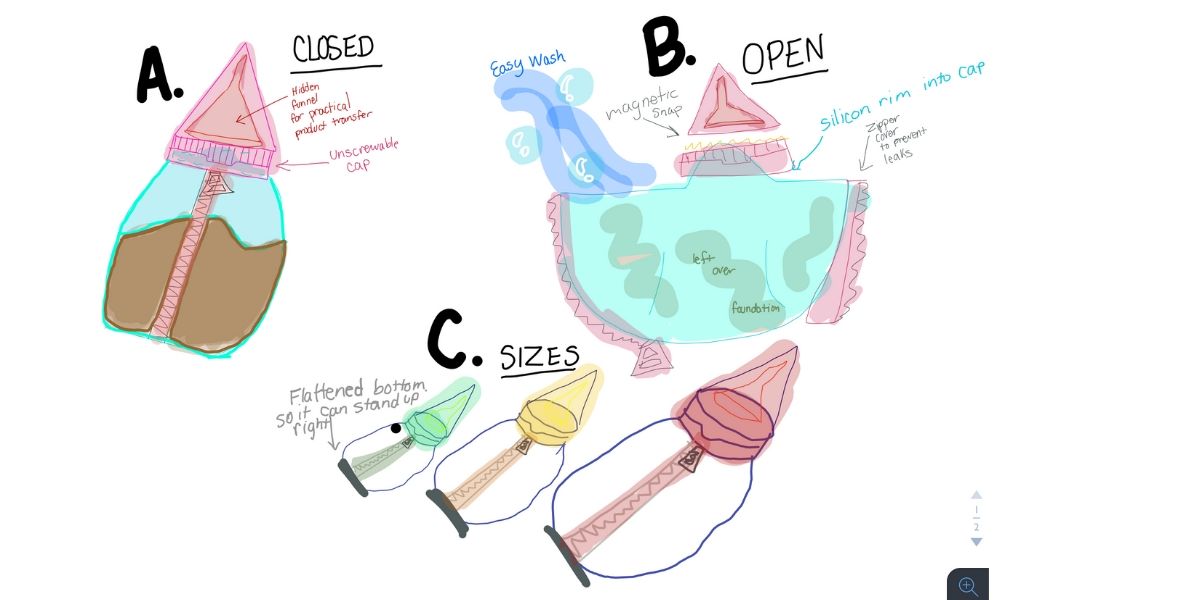 A.
CLOSED
Hidden
funnel
for practical
product transfer
Unscrewable
cap
B.
OPEN
Easy Wash
magnetic
snap
silicon rim into cap
Zipper
cover
to prevent
leaks
left
over
foundation
C.
SIZES
Flattened bottom
so it can stand up
right
1
2